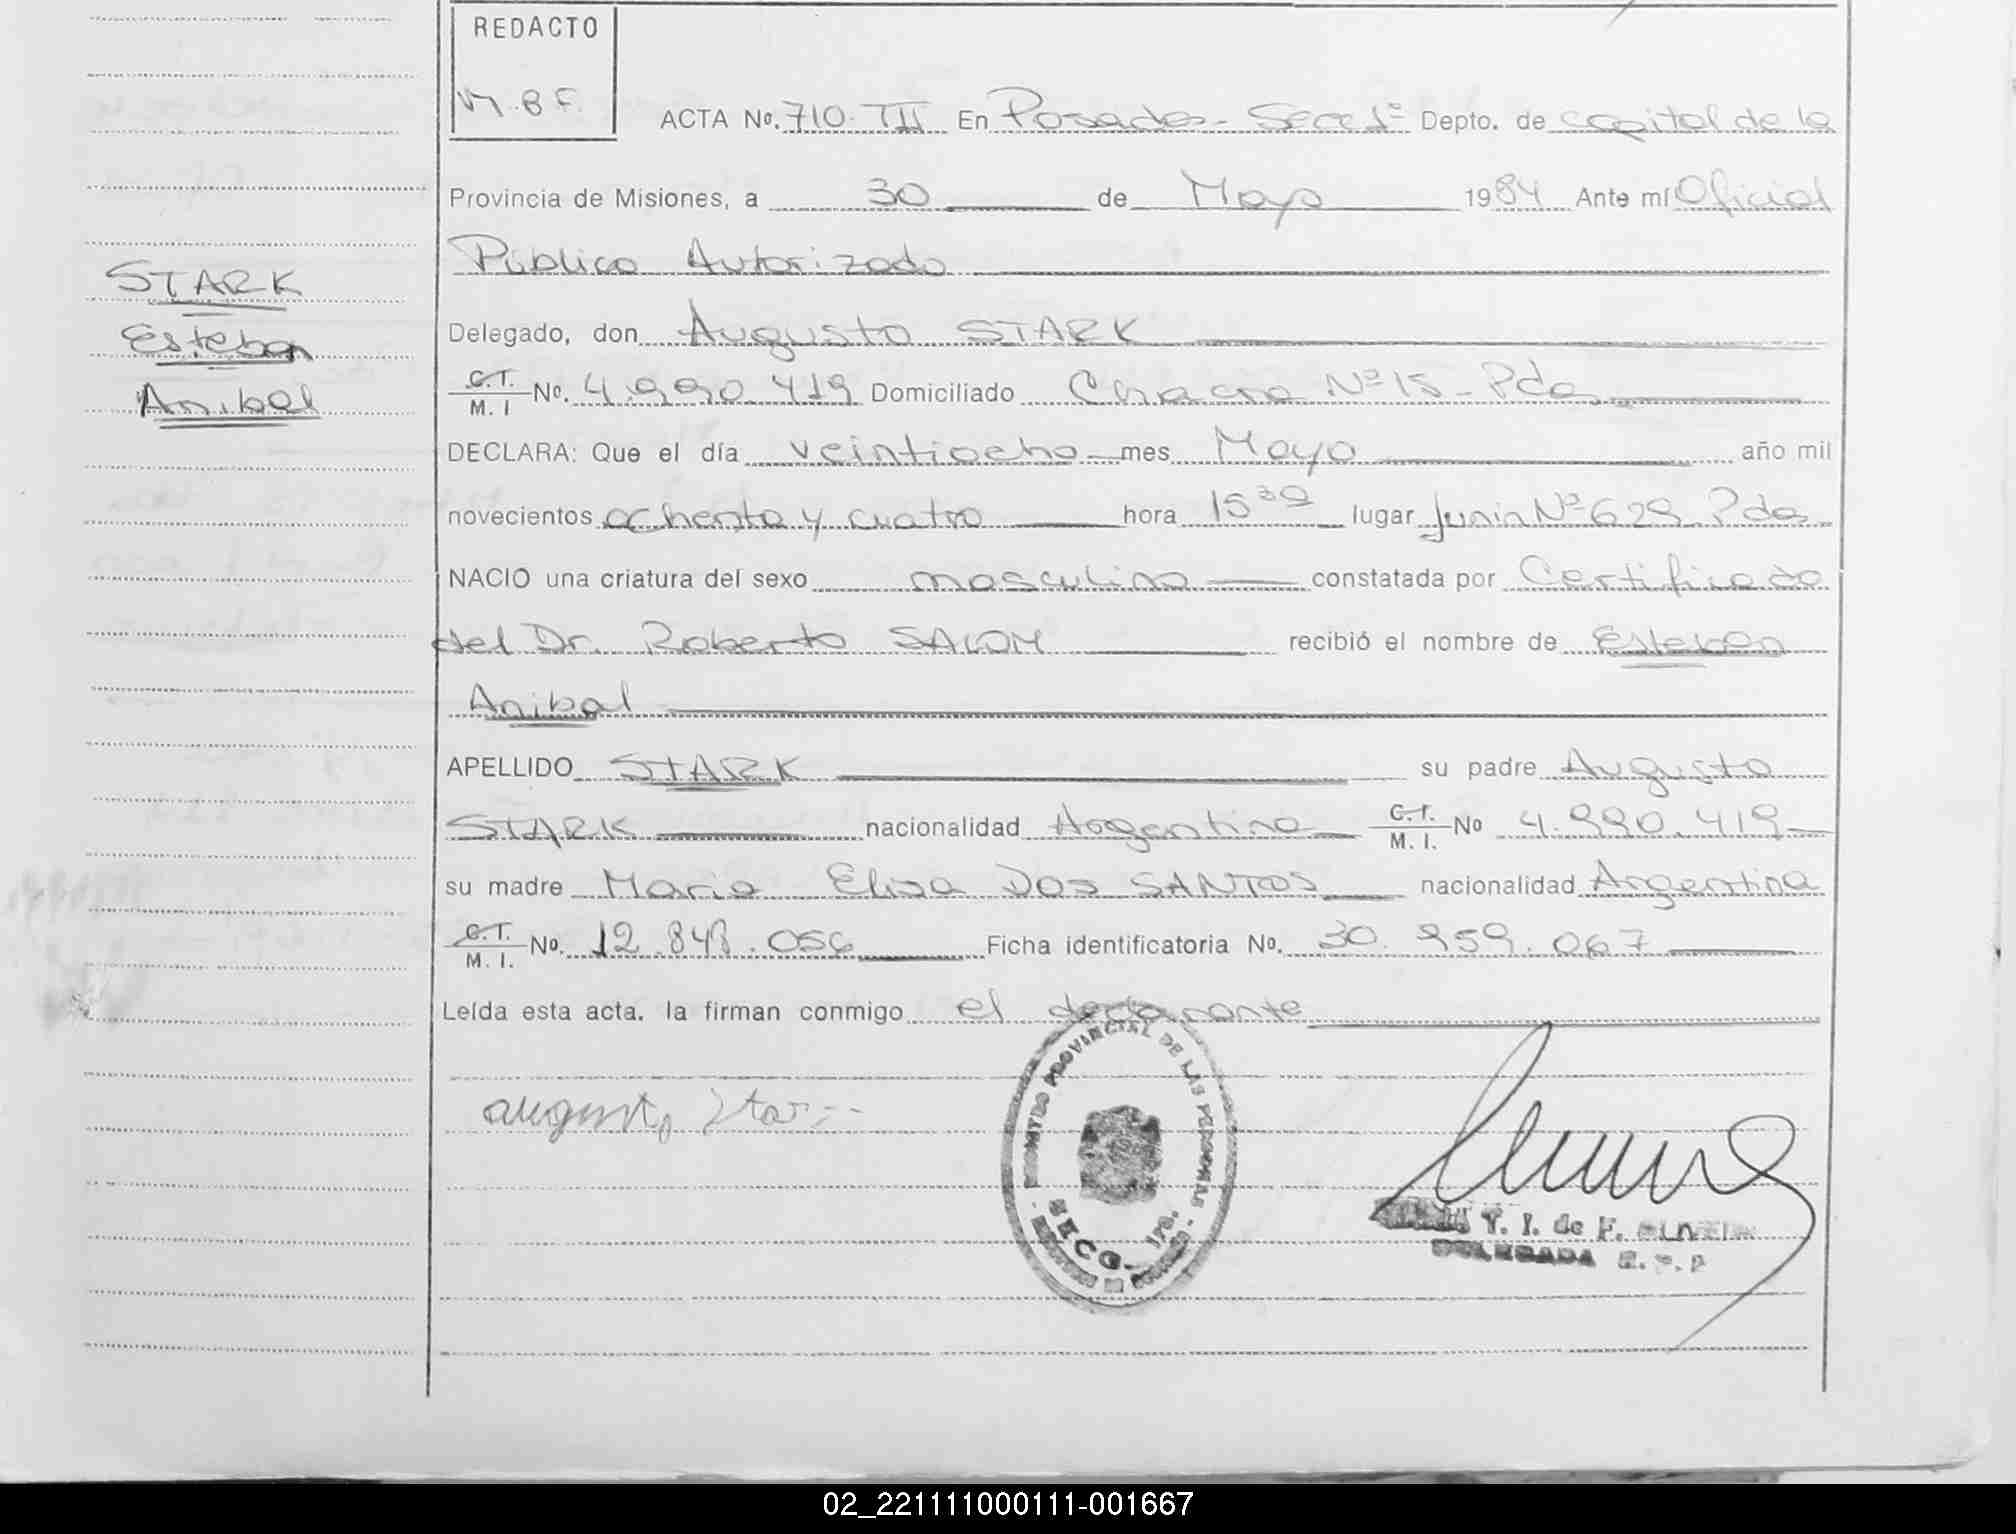 REDACTO
M.B.F.
ACTA No. 710. TII En Posadas - Secc 1ª Depto. de capital de la
Provincia de Misiones, a 30 de Mayo 1984 Ante mí Oficial
Público Autorizado
STARK
Esteban
Anibal
Delegado, don Augusto STARK
C.T. M. I No. 4.990.419 Domiciliado Chacra Nº 15 - Pdas
DECLARA: Que el día veintiocho mes Mayo año mil
novecientos ochenta y cuatro hora 15 30 lugar Junin Nº 629 Pdas
NACIO una criatura del sexo masculino constatada por Certificado
del Dr. Roberto SALOM recibió el nombre de Esteban
Anibal
APELLIDO STARK su padre Augusto
STARK nacionalidad Argentina C.T. M. I. No 4.990.419
su madre Maria Elisa DOS SANTOS nacionalidad Argentina
C.T. M. I. No. 12.848.056 Ficha identificatoria No. 30.959.067
Leída esta acta. la firman conmigo el declarante
august Star
REGISTRO PROVINCIAL DE LAS PERSONAS
SECC. 1ra.
Y. I. de F.
DELEGADA R. P. P
02_221111000111-001667